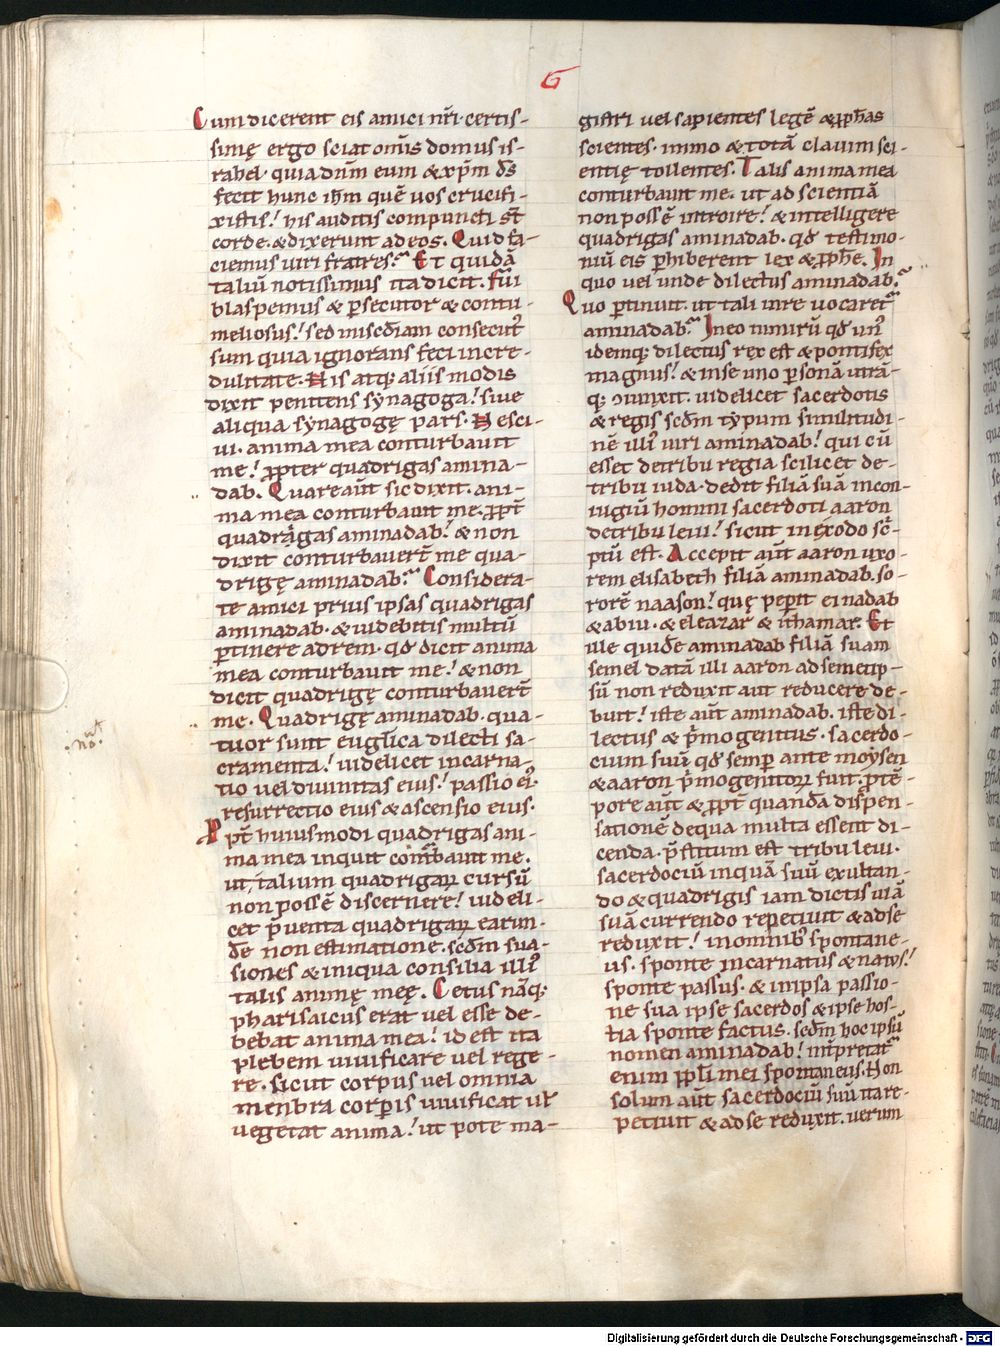 G
Cum dicerent eis amici nr̄i. certis-
simę ergo sciat om̄is domus is-
rahel. quia dn̄m eum & xp̄m d̄s
fecit hunc ih̄m quē uos crucifi-
xistis! his auditis compuncti s̄t
corde. & dixerunt ad eos. Quid fa-
ciemus uiri fratres? Et quidā
taliū notissimus ita dicit. Fui
blasphemus & p̄secutor & contu-
meliosus! sed misc̄diam consecut᷒
sum quia ignorans feci incre-
dulitate. His atq; aliis modis
dixit penitens synagoga! siue
aliqua synagogę pars. Nesci-
ui. anima mea conturbauit
me! ꝓpter quadrigas amina-
dab. Quare aūt sic dixit. ani-
ma mea conturbauit me. ꝓpt̄
quadrigas aminadab! & non
dixit conturbauer̄t me qua-
drigę aminadab? Considera-
te amici prius ipsas quadrigas
aminadab. & uidebitis multū
p̄tinere ad rem. qđ dicit anima
mea conturbauit me! & non
dicit quadrigę conturbauer̄t
me. Quadrigę aminadab. qua-
tuor sunt eugl̄ica dilecti sa-
cramenta! uidelicet incarna-
tio uel diuinitas eius! passio ei᷒.
resurrectio eius & ascensio eius.
Ppt̄ huiusmodi quadrigas ani-
ma mea inquit cont̄bauit me.
ut talium quadrigaꝝ cursū
non possē discernere! uideli-
cet p̄uenta quadrigaꝝ earun-
đe non estimatione. scđm sua-
siones & iniqua consilia illi᷒
talis animę meę. Cetus nāq;
pharisaicus erat uel esse de-
bebat anima mea! id est ita
plebem uiuificare uel rege-
re. sicut corpus uel omnia
menbra corp̄is uiuificat ul̄
uegetat anima! ut pote ma-
gistri uel sapientes legē & ꝓph̄as
scientes. immo & totā clauim sci-
entię tollentes. Talis anima mea
conturbauit me. ut ad scientiā
non possē introire! & intelligere
quadrigas aminadab. qđ testimo-
niū eis p̄hiberent lex & ꝓphe. In
quo uel unde dilectus aminadab?
Quo p̄tinuit. ut tali iure uocaret᷒
aminadab? In eo nimirū qđ un᷒
idemq; dilectus rex est & pontifex
magnus! & in se uno p̄sonā utrā-
q; ꝯiunxit. uidelicet sacerdotis
& regis scđm typum similitudi-
nē illi᷒ uiri aminadab! qui cū
esset de tribu regia scilicet de-
tribu iuda. dedit filiā suā in con-
iugiū homini sacerdoti aaron
de tribu leui! sicut in exodo sc̄-
ptū est. Accepit aūt aaron uxo-
rem elisabeth filiā aminadab. so-
rorē naason! quę pep̄it ei nadab
& abiu. & eleazar & ithamar. Et
ille quidē aminadab filiā suam
semel datā illi aaron ad semetip-
sū non reduxit aut reducere de-
buit! iste aūt aminadab. iste di-
lectus & p̄mogenitus. sacerdo-
cium suū qđ semp̄ ante moysen
& aaron p̄mogenitoꝝ fuit. p̄tē-
pore aūt & ꝓpt̄ quandā dispen-
sationē de qua multa essent di-
cenda. p̄stitum est tribu leui.
sacerdociū inquā suū exultan-
do & quadrigis iam dictis uiā
suā currendo repetiuit & ad se
reduxit! in omnib᷒ spontane-
us. sponte incarnatus & natus!
sponte passus. & in ipsa passio-
ne sua ipse sacerdos & ipse hos-
tia sponte factus. scđm hoc ipsū
nomen aminadab! int̄pretat᷒
enim ppl̄i mei spontaneus. Non
solum aūt sacerdociū suū ita re-
petiuit & ad se reduxit. uerum
Digitalisierung gefördert durch die Deutsche Forschungsgemeinschaft - DFG